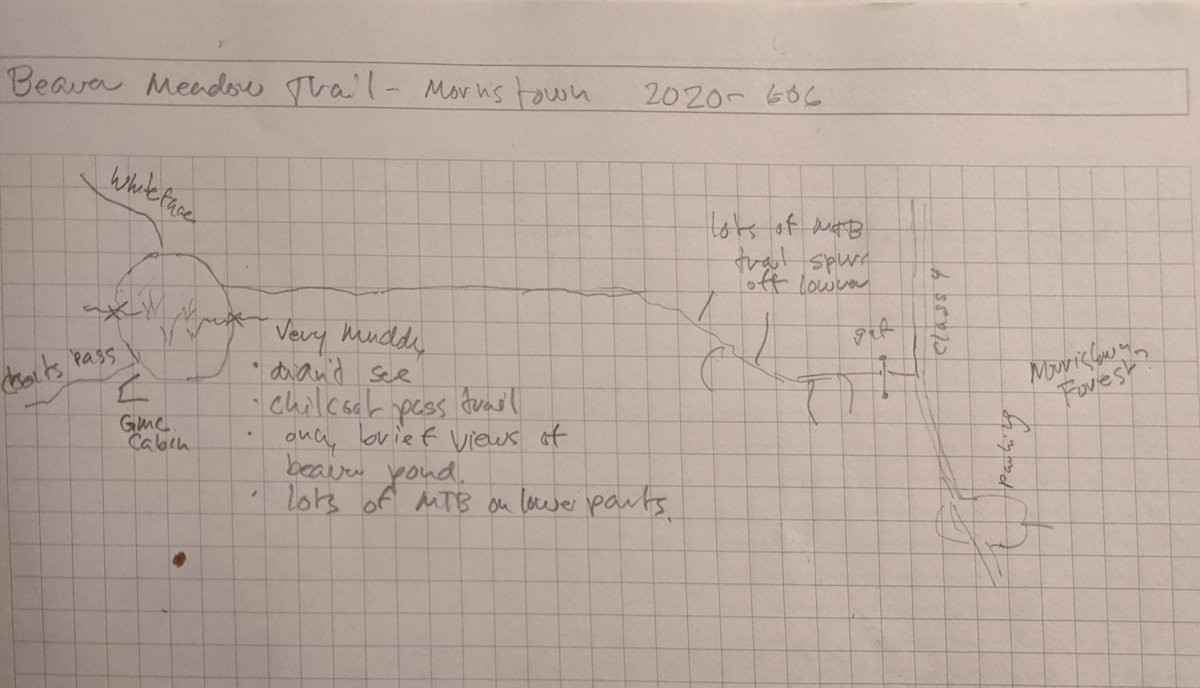 Beaver Meadow Trail - Morristown 2020-606
Whiteface
lots of MTB
trail spurs
off lower
Class 4
Morristown
Forest?
Parking
pass
GMC
Cabin
Very muddy
· didn't see
· chilcoot pass trail
· only brief views of
beaver pond.
· lots of MTB on lower parts.